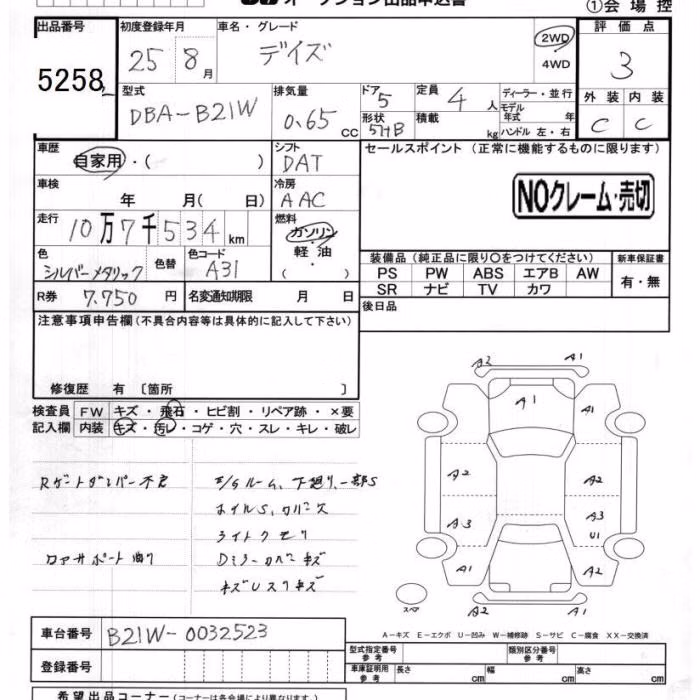 オークション出品申込書
①会場控
出品番号 初度登録年月 車名・グレード 評価点
5258 25 8月 デイズ 2WD 4WD 3
型式 排気量 ドア 定員 ディーラー・並行 外装 内装
DBA-B21W 0.65cc 5 4人 モデル年式 年 C C
形状 5HB 積載 kg ハンドル 左・右
車歴 自家用・( ) シフト DAT セールスポイント (正常に機能するものに限ります)
車検 年 月( 日) 冷房 AAC NOクレーム・売切
走行 10万7千534km 燃料 ガソリン 軽油 ( )
色 シルバーメタリック 色替 色コード A31
装備品(純正品に限り○をつけてください) 新車保証書
PS PW ABS エアB AW 有・無
SR ナビ TV カワ
R券 7.750円 名変通期限 月 日 後日品
注意事項申告欄(不具合内容等は具体的に記入して下さい)
修復歴 有〔箇所 〕
検査員 FW キズ・飛石・ヒビ割・リペア跡・×要
記入欄 内装 キズ・汚レ・コゲ・穴・スレ・キレ・破レ
Rゲートダンパー不良
E/Gルーム、下廻り、一部S
ホイルS、カバース
ライトクモリ
コアサポート
Dミラーカバーキズ
キズUスリキズ
A2 A1
A1
A1
A2 A2
A3 A3
U1
A1 A2
スペア A2 A1
A-キズ E-エクボ U-凹み W-補修跡 S-サビ C-腐食 XX-交換済
車台番号 B21W-0032523
登録番号
型式指定番号 参考 類別区分番号 参考
車庫証明用 参考 長さ cm 幅 cm 高さ cm
希望出品コーナー(コーナーは各会場により異なります。)